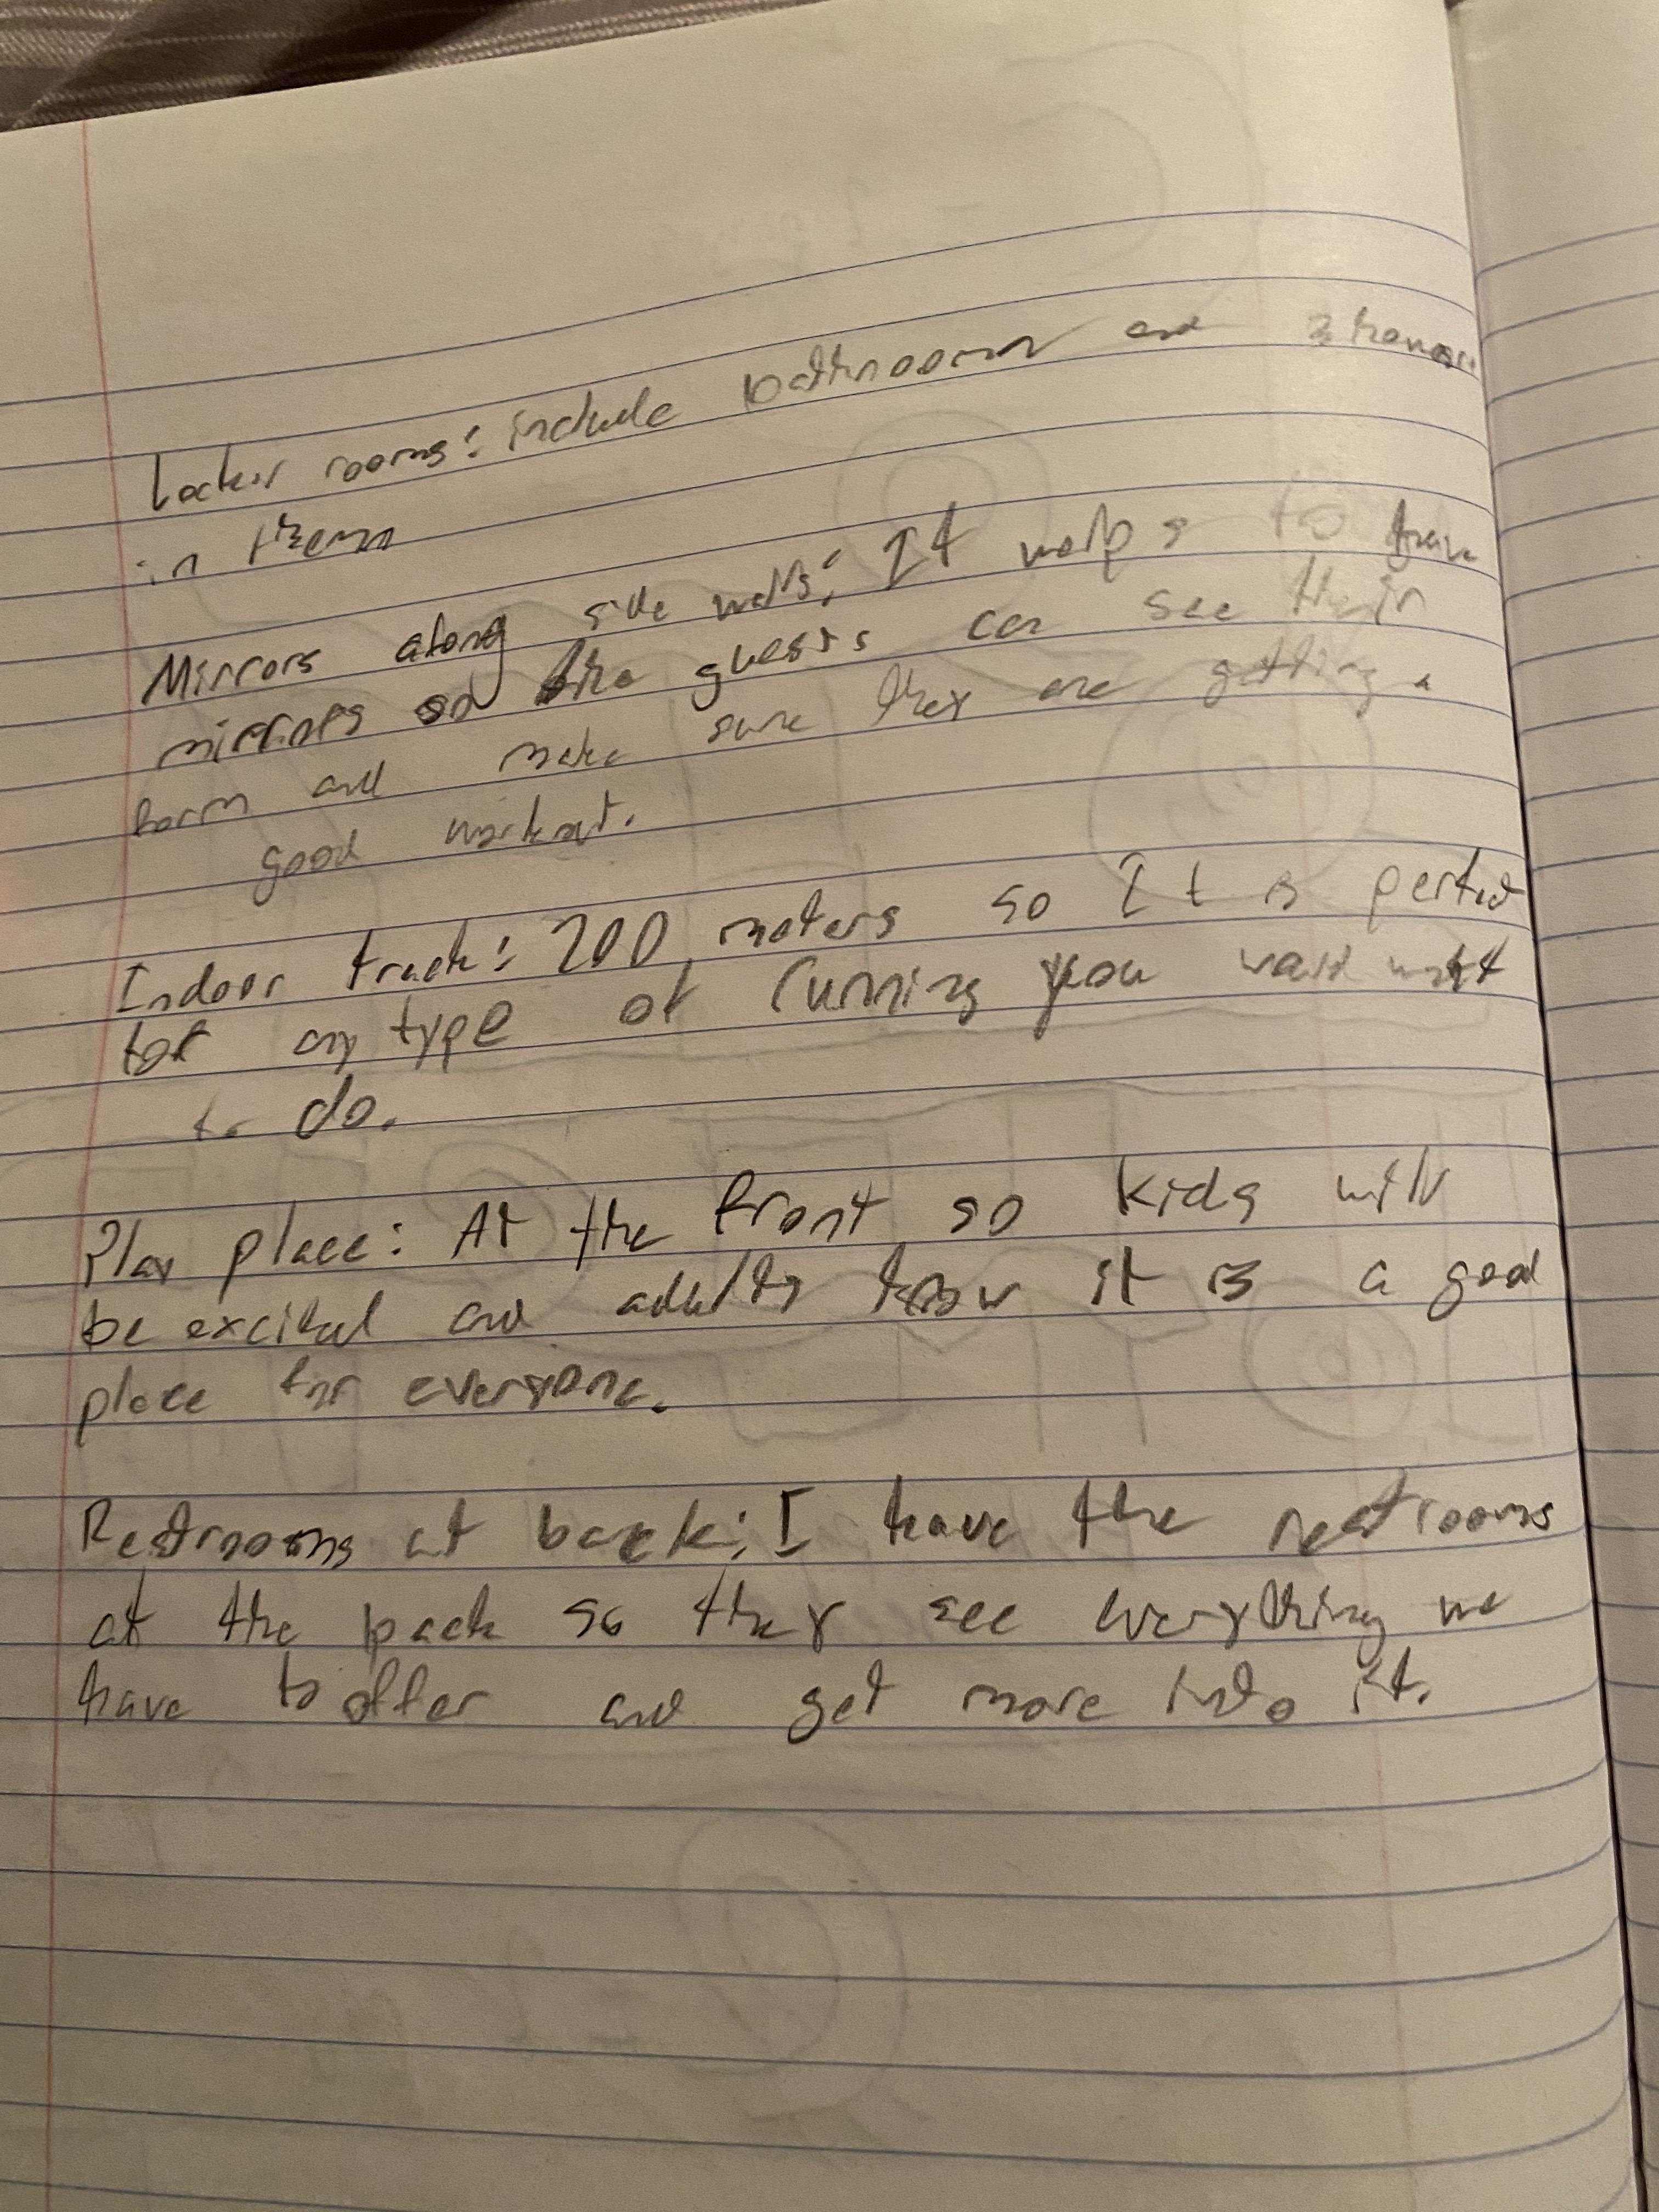 Locker rooms: include bathrooms and showers
in them
Mirrors along side walls: It helps to have
mirrors so the guests can see their
form and make sure they are getting a
good workout.
Indoor track: 200 meters so It is perfect
for any type of running you want
to do.
Play place: At the front so kids will
be excited and adults know it is a good
place for everyone.
Restrooms at back: I have the restrooms
at the back so they see everything we
have to offer and get more into it.